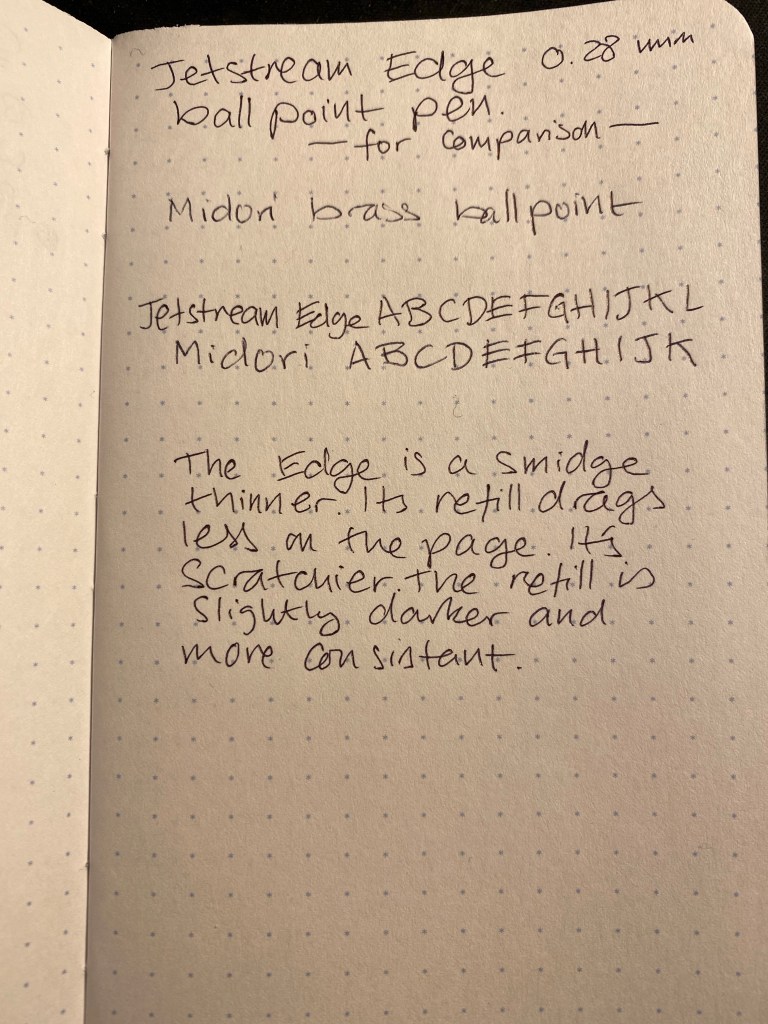 Jetstream Edge 0.28 mm
ball point pen.
— for comparison —
Midori brass ballpoint
Jetstream Edge ABCDEFGHIJKL
Midori ABCDEFGHIJK
The Edge is a smidge
thinner. Its refill drags
less on the page. Its
scratchier. The refill is
slightly darker and
more consistant.